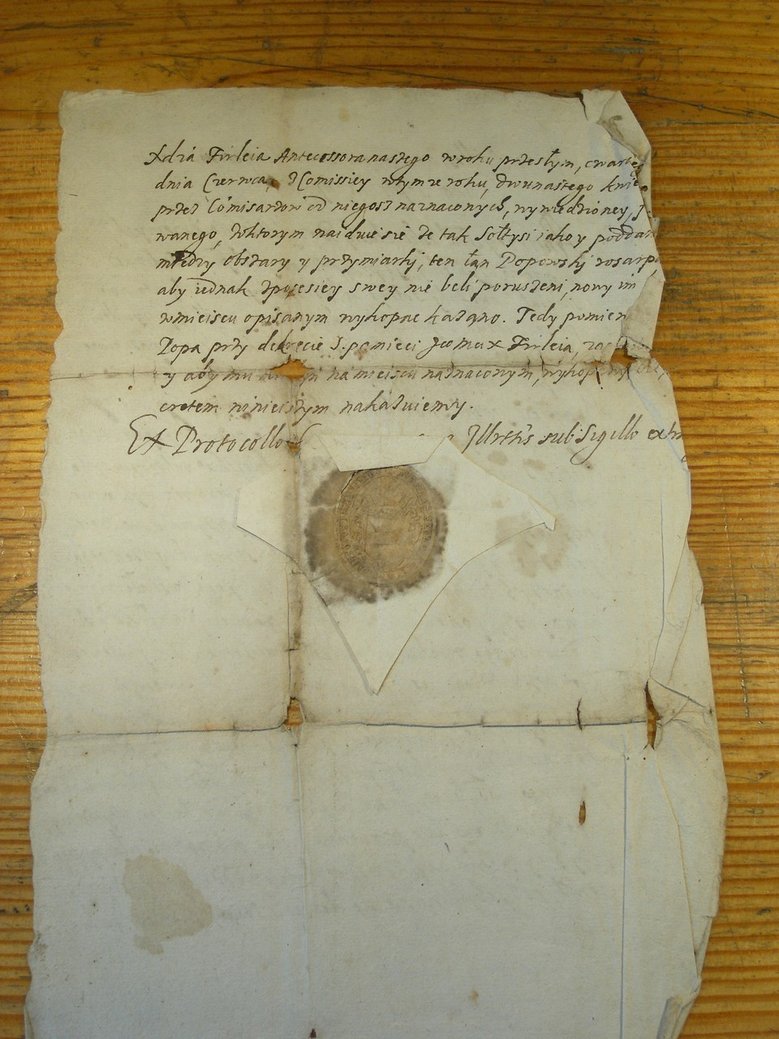 Xdzá Firleia Antecessora naszego w roku przeszłym, czwarte
dnia Czerwca, z Comissiey wtymze roku, dwunastego kwie
przez Comisarzow od niegosz naznaconych, wywiedzioney,
wanego, w ktorym naiduie sie ze tak Sołtysi iako y poddan
miedzy obszary y przymiarki, ten łan Popowski rozarp
aby iednak z posesiey swey nie beli poruszeni, nowy im
w mieiscu opisanym wykopac kazano. Tedy pomien
Popa przy dekrecie S. pamieci Jeo Firleia,
y aby mu na mieiscu naznaconym, wykop
cretem ninieiszym nakazuiemy.
Ex Protocollo Illrtis sub Sigillo extr